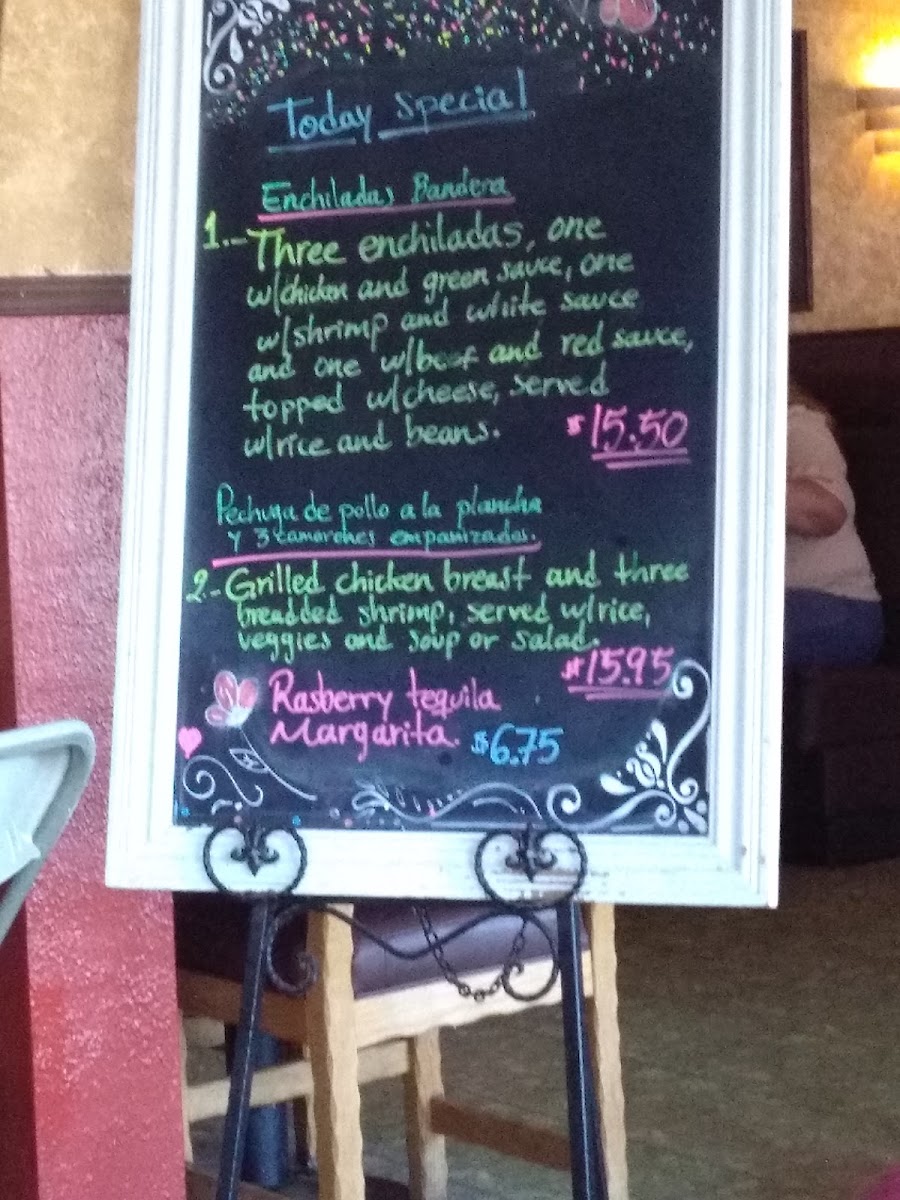 Today Special
Enchiladas Bandera
1.- Three enchiladas, one
w/chicken and green sauce, one
w/shrimp and white sauce
and one w/beef and red sauce,
topped w/cheese, served
w/rice and beans. $15.50
Pechuga de pollo a la plancha
y 3 camarones empanizados.
2.- Grilled chicken breast and three
breadded shrimp, served w/rice,
veggies and soup or salad.
$15.95
Rasberry tequila
Margarita. $6.75